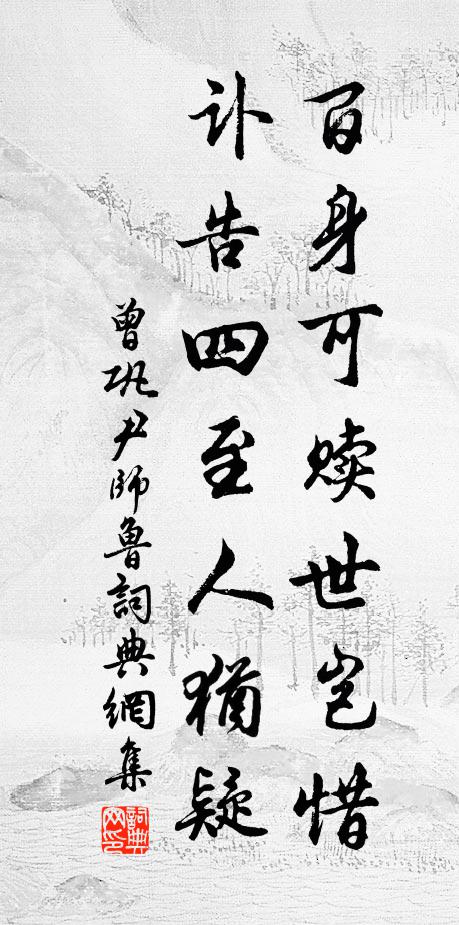 百身可赎世岂惜
讣告四至人犹疑
曾巩尹師魯詞典網集
詞典网印